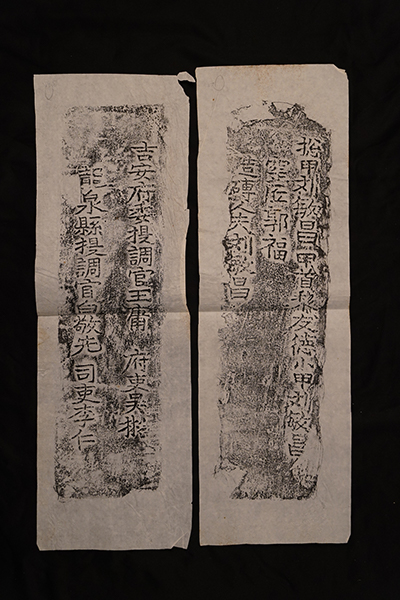 揔甲刘敏昌甲首孫友德小甲刘敏昌
窯匠郭福
造磚人夫刘敏昌
吉安府委提調官王庸 府吏吳
龍泉縣提調官白敬先 司吏李仁